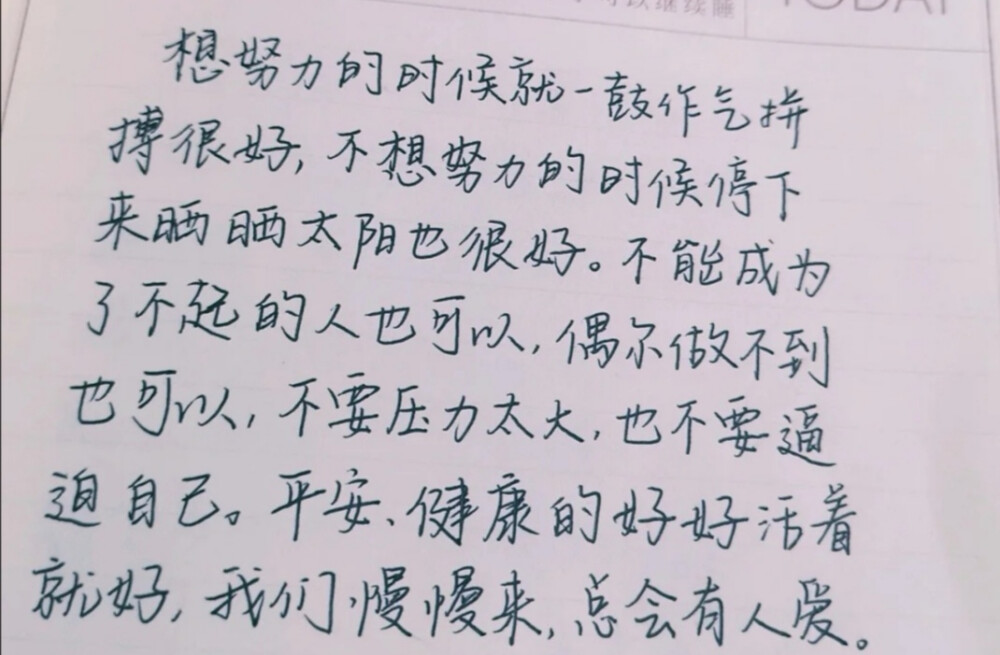 可以继续睡
TODAY
想努力的时候就一鼓作气拼
搏很好,不想努力的时候停下
来晒晒太阳也很好。不能成为
了不起的人也可以,偶尔做不到
也可以,不要压力太大,也不要逼
迫自己。平安、健康的好好活着
就好,我们慢慢来,总会有人爱。